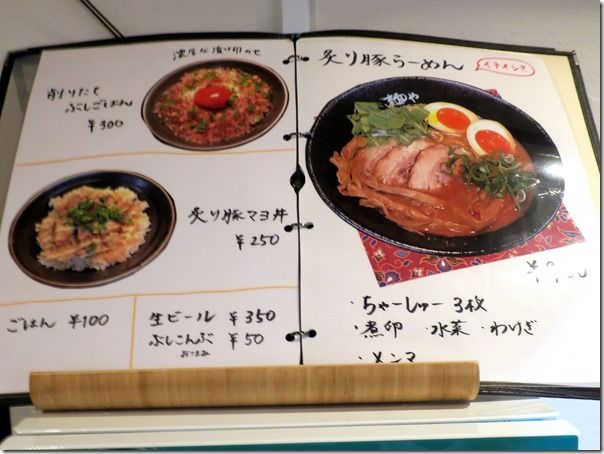 濃厚な漬け卵のせ
削りたて
ぶしごはん
¥300
炙り豚マヨ丼
¥250
ごはん ¥100
生ビール ¥350
ぶしこんぶ ¥50
おつまみ
炙り豚らーめん
イチオシ!!
麺や
・ちゃーしゅー 3枚
・煮卵 ・水菜 ・わけぎ
・メンマ